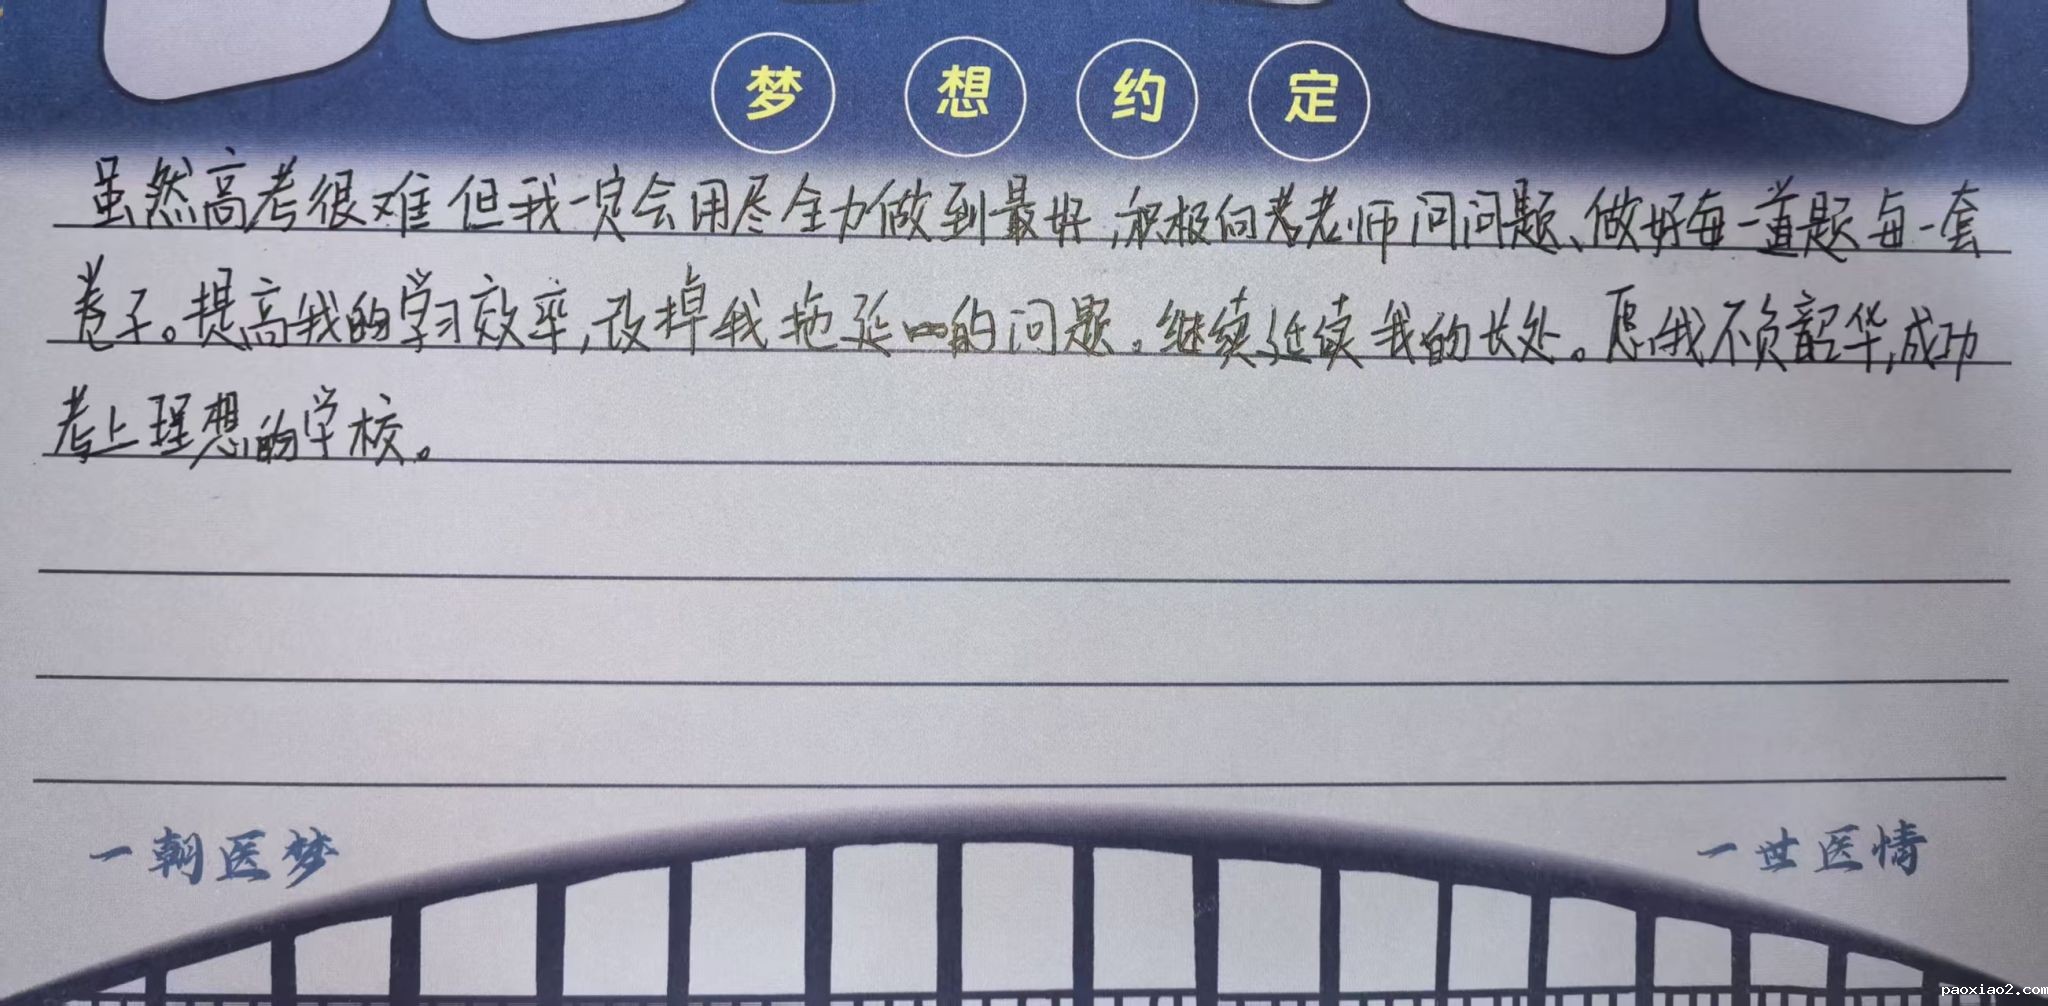 梦想约定
虽然高考很难但我一定会用尽全力做到最好,积极向老师问问题、做好每一道题每一套
卷子。提高我的学习效率,改掉我拖延的问题。继续延续我的长处。愿我不负韶华,成功
考上理想的学校。
一朝医梦
一世医情
paoxiao2.com